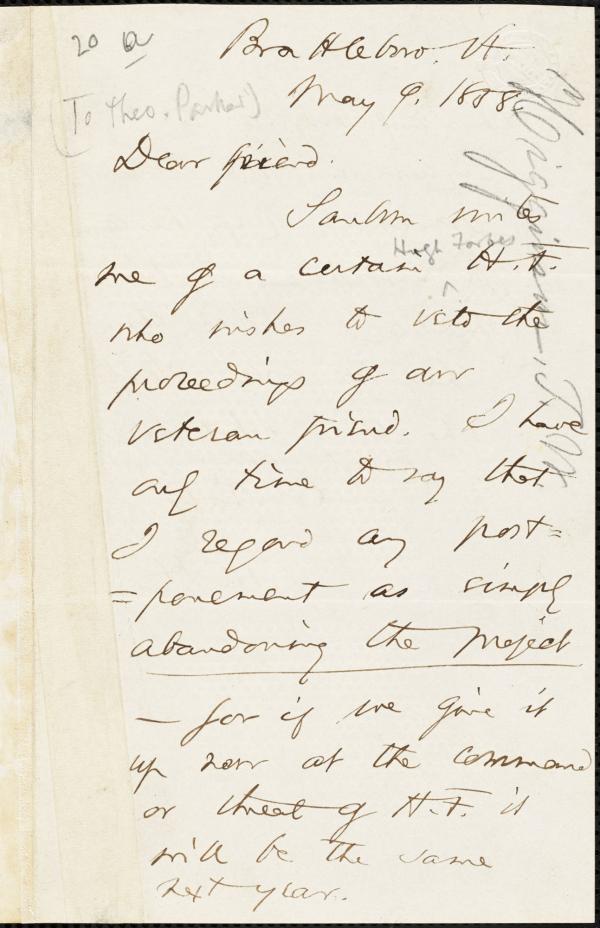 20 a
Brattleboro. Vt.
May 9. 1858.
(To Theo. Parker)
Dear friend.
Sanborn writes
Hugh Forbes
me of a certain H. F.
^
who wishes to veto the
proceedings of our
veteran friend. I have
only time to say that
I regard any post=
=ponement as simply
abandoning the project
— for if we give it
up now at the command
or threat of H. F. it
will be the same
next year.
Higginson, T. W.